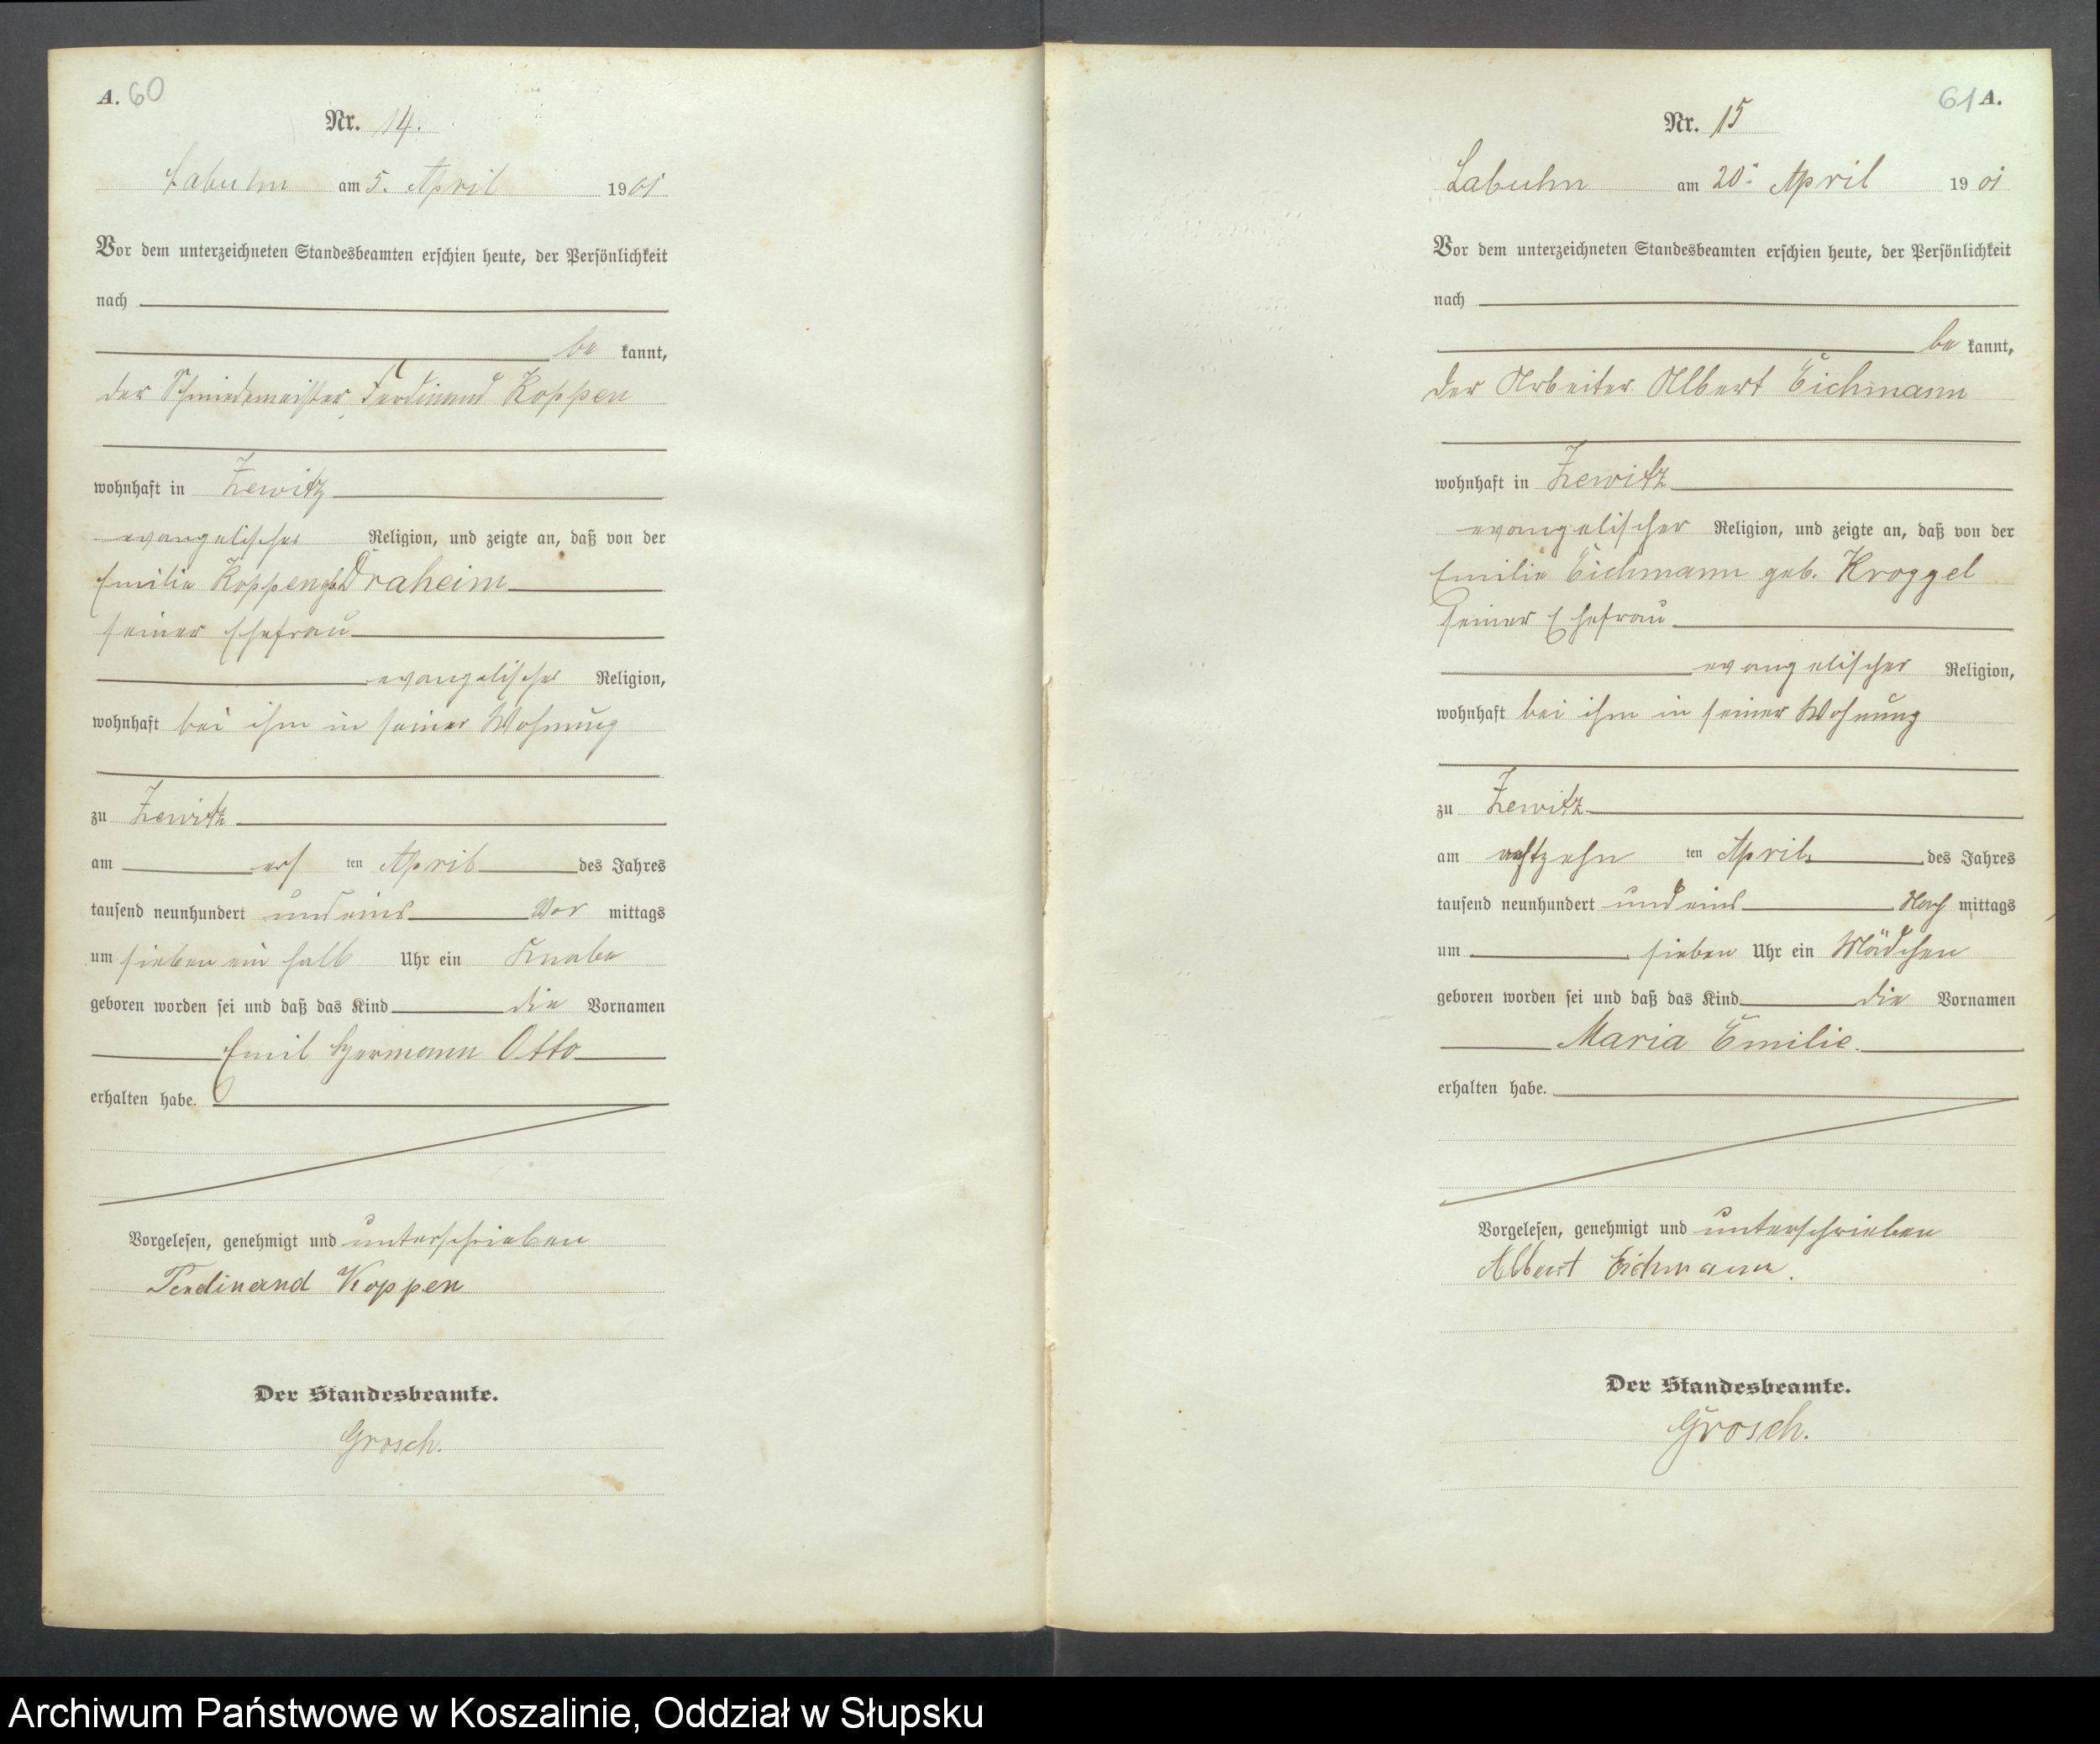 A. 60
Nr. 14.
Labuhn am 5. April 1901
Vor dem unterzeichneten Standesbeamten erschien heute, der Persönlichkeit
nach
be kannt,
der Schmiedemeister Ferdinand Koppen
wohnhaft in Zewitz
evangelischer Religion, und zeigte an, daß von der
Emilie Koppen geb. Draheim
seiner Ehefrau
evangelischer Religion,
wohnhaft bei ihm in seiner Wohnung
zu Zewitz
am ersten April des Jahres
tausend neunhundert und eins Vor mittags
um sieben ein halb Uhr ein Knabe
geboren worden sei und daß das Kind die Vornamen
Emil Hermann Otto
erhalten habe.
Vorgelesen, genehmigt und unterschrieben
Ferdinand Koppen
Der Standesbeamte.
Grosch.
61 A.
Nr. 15
Labuhn am 20. April 1901
Vor dem unterzeichneten Standesbeamten erschien heute, der Persönlichkeit
nach
be kannt,
der Arbeiter Albert Eichmann
wohnhaft in Zewitz
evangelischer Religion, und zeigte an, daß von der
Emilie Eichmann geb. Kroggel
seiner Ehefrau
evangelischer Religion,
wohnhaft bei ihm in seiner Wohnung
zu Zewitz
am achtzehn ten April des Jahres
tausend neunhundert und eins Nach mittags
um sieben Uhr ein Mädchen
geboren worden sei und daß das Kind die Vornamen
Maria Emilie
erhalten habe.
Vorgelesen, genehmigt und unterschrieben
Albert Eichmann.
Der Standesbeamte.
Grosch.
Archiwum Państwowe w Koszalinie, Oddział w Słupsku